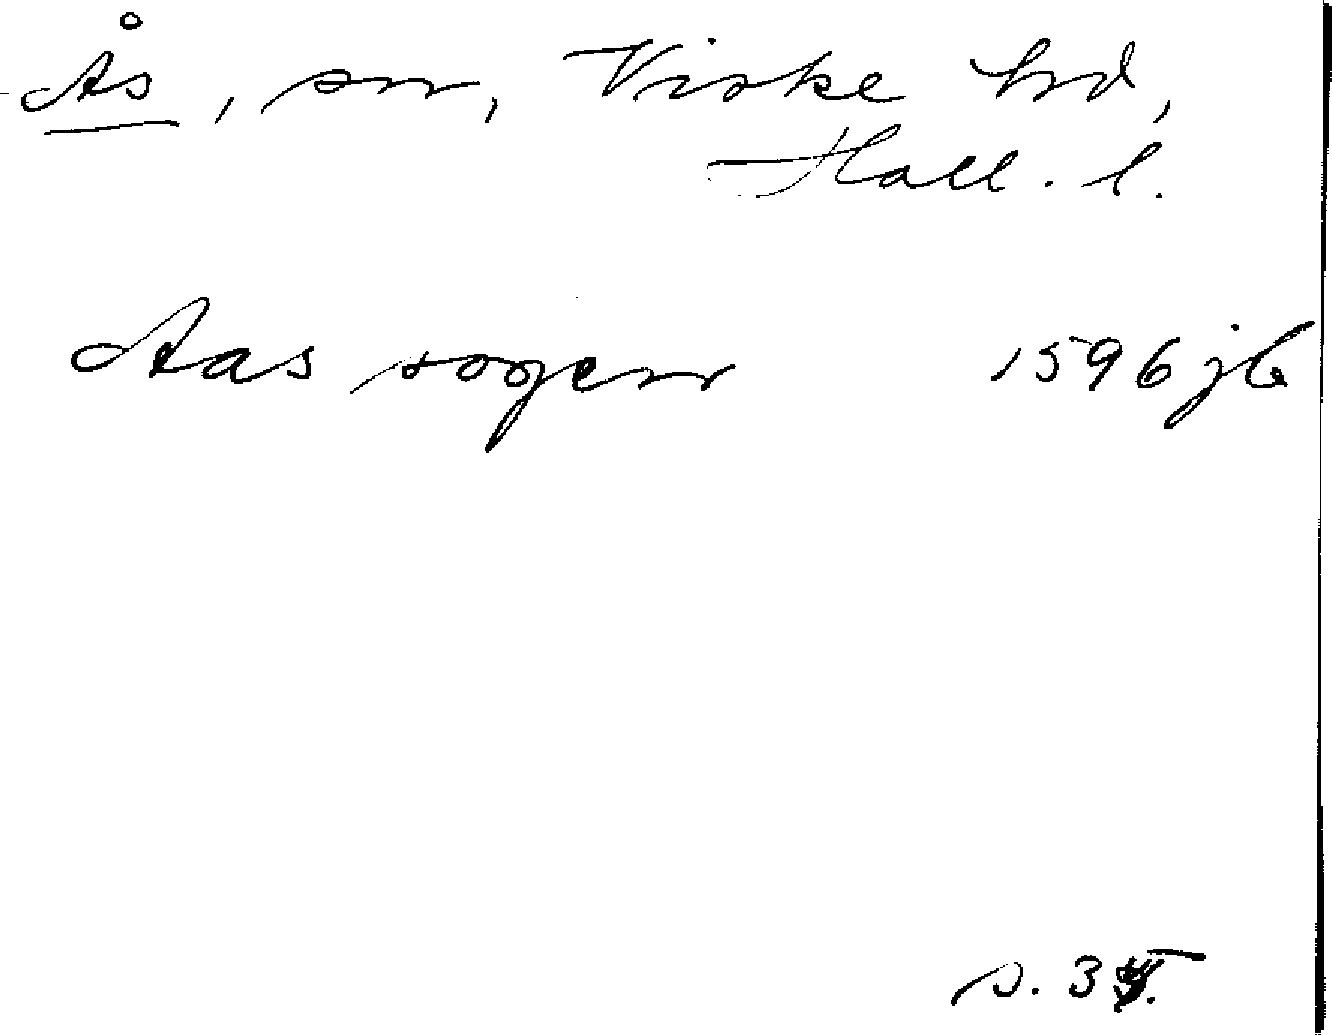 Ås, sn, Viske hd,
Hall. l.
Aas sogenn 1596 jb
s. 35.